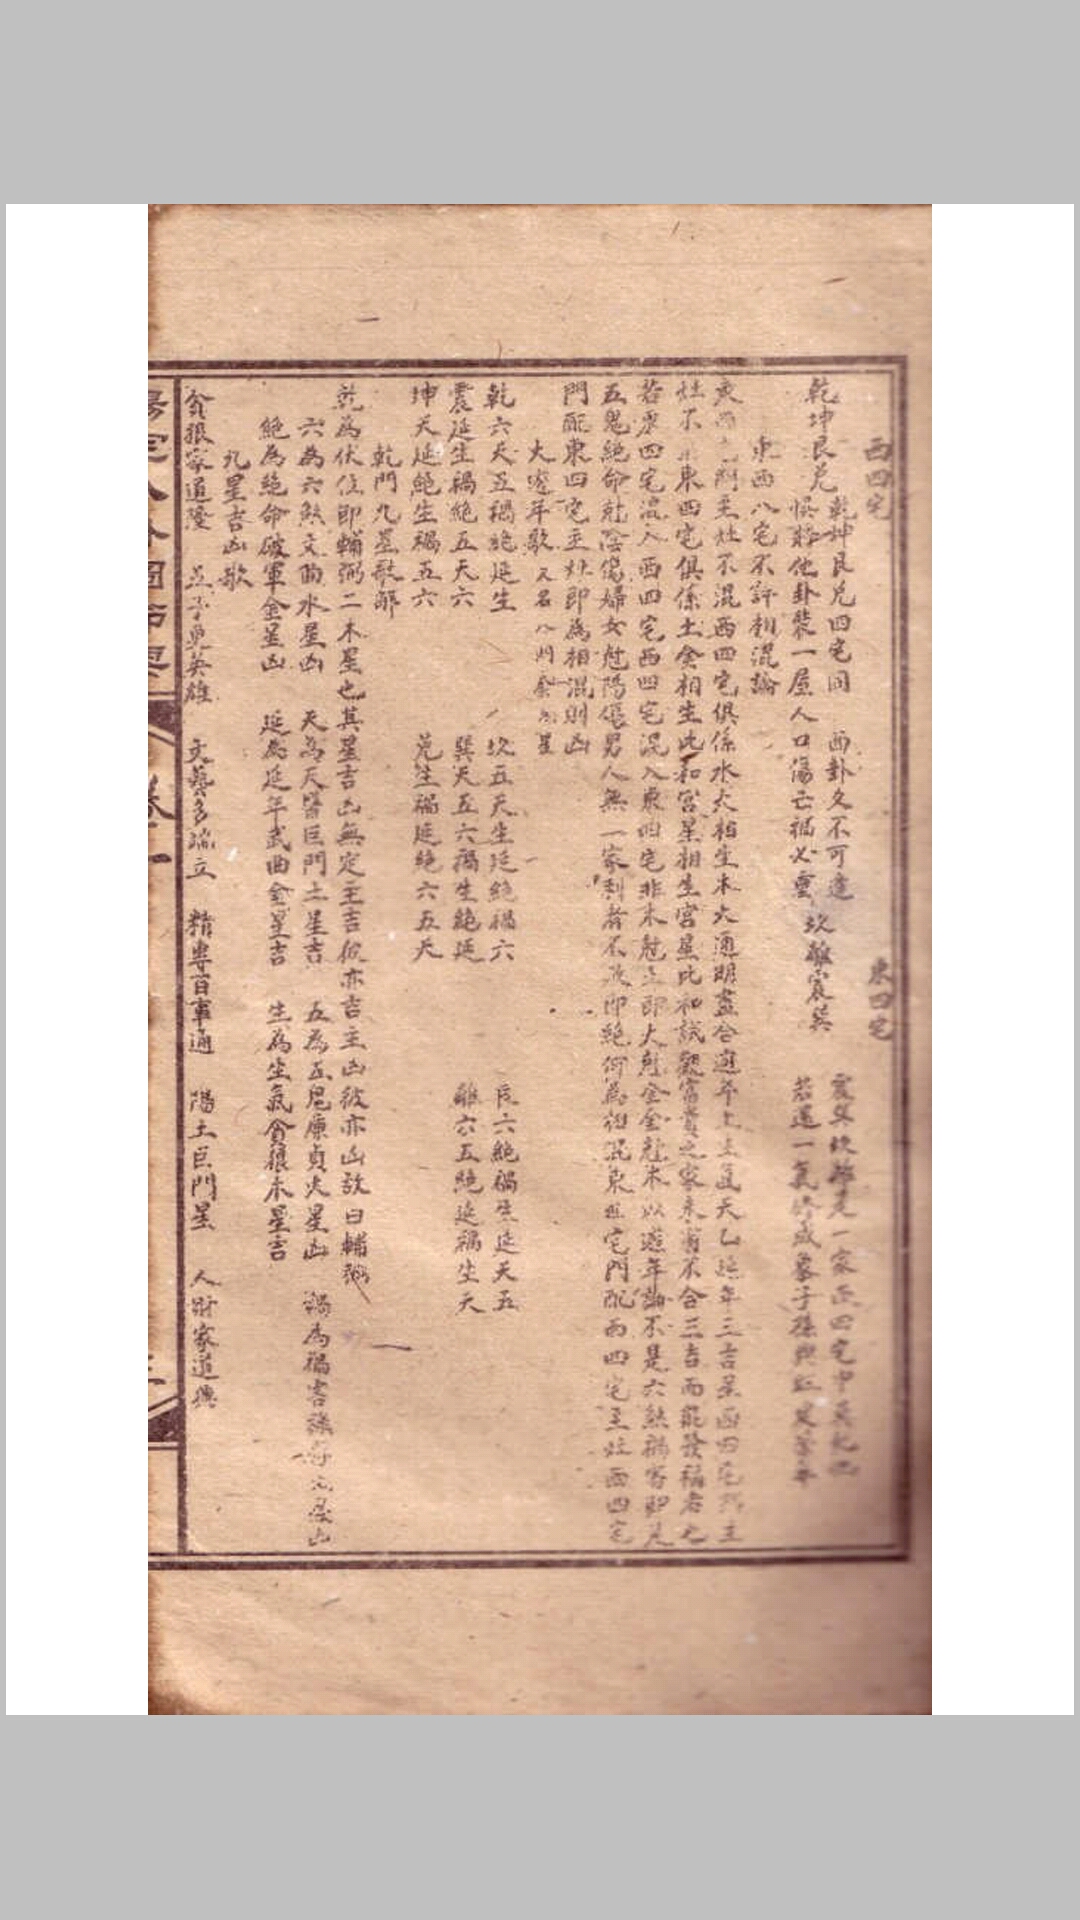 西四宅
東四宅
乾坤艮兌
乾坤艮兌四宅同 西卦爻不可逢
悞將他卦裝一屋人口傷亡禍必重
坎離震巽
震巽坎離是一家西四宅中莫犯他
若還一氣修成象子孫興旺定榮華
東西八宅不許相混論
灶不混西四宅俱係水火相生木火通明盡合遊年上生氣天乙延年三吉星西四宅門主
灶不混東四宅俱係土金相生比和宮星相生宮星比和試觀富貴之家未有不合三吉而能發福者也
若東四宅混入西四宅西四宅混入東四宅非木尅土即火尅金金尅木以遊年論不是六煞禍害即是
五鬼絕命尅陰傷婦女尅陽傷男人無一家利者不敗即絕何為相混東四宅門配西四宅主灶西四宅
門配東四宅主灶即為相混則凶
大遊年歌 又名八門
乾六天五禍絕延生 坎五天生延絕禍六 艮六絕禍生延天五
震延生禍絕五天六 巽天五六禍生絕延 離六五絕延禍生天
坤天延絕生禍五六 兌生禍延絕六五天
乾門九星歌解
乾為伏位即輔弼二木星也其星吉凶無定主吉彼亦吉主凶彼亦凶故曰輔弼
六為六煞文曲水星凶 天為天醫巨門土星吉 五為五鬼廉貞火星凶 禍為禍害祿存土星凶
絕為絕命破軍金星凶 延為延年武曲金星吉 生為生氣貪狼木星吉
九星吉凶歌
貪狼家道隆 五子更英雄 文藝多端立 精專百事通 陽土巨門星 人財家道興
卷一